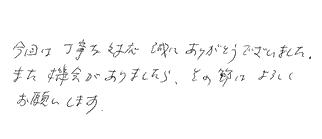 今回は 丁寧な 対応 誠に ありがとうございました。
また 機会がありましたら、その節は よろしく
お願いします.